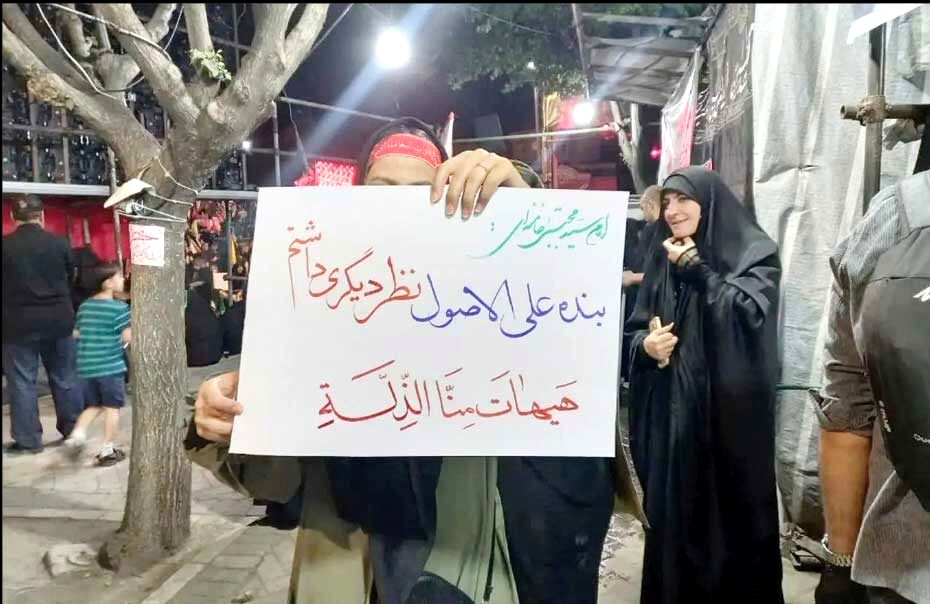 امام سید مجتبی خامنه‌ای :
بنده علی الاصول نظر دیگری داشتم
هَیهاتَ مِنَّا الذِّلَّةِ